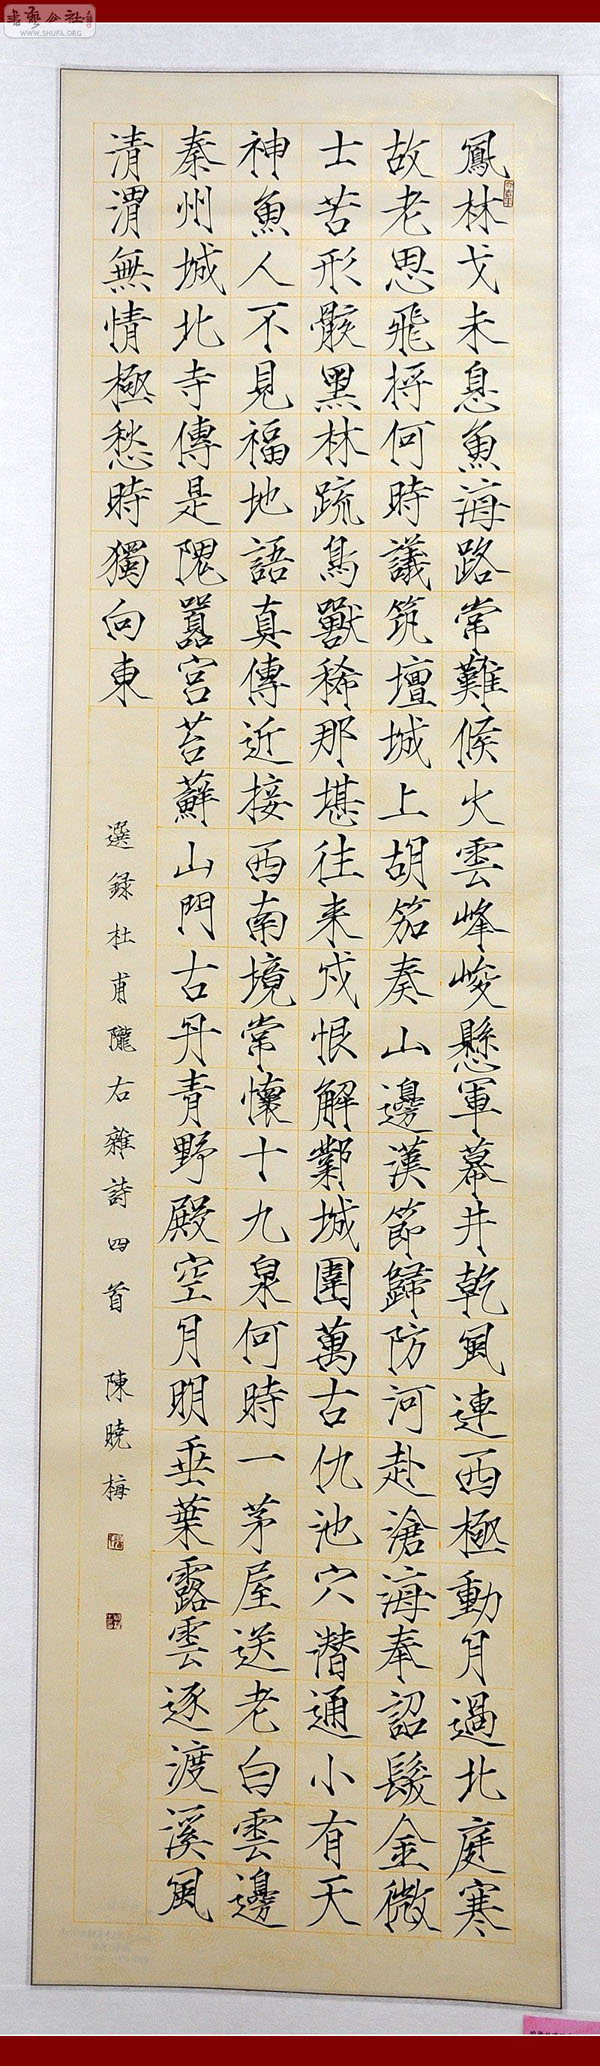 書藝公社
WWW.SHUFA.ORG
鳳林戈未息魚海路常難候火雲峰峻懸軍幕井乾風連西極動月過北庭寒
故老思飛將何時議筑壇城上胡笳奏山邊漢節歸防河赴滄海奉詔髮金微
士苦形骸黑林疏鳥獸稀那堪往来戍恨解鄴城圍萬古仇池穴潜通小有天
神魚人不見福地語真傳近接西南境常懷十九泉何時一茅屋送老白雲邊
秦州城北寺傳是隗囂宮苔蘚山門古丹青野殿空月明垂葉露雲逐渡溪風
清渭無情極愁時獨向東
選録杜甫隴右雜詩四首 陳曉梅